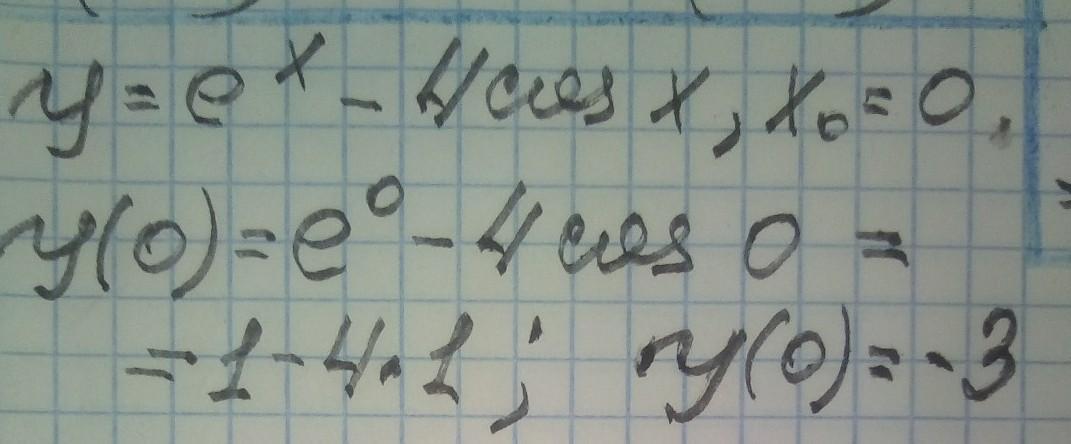 y = e^x - 4 cos x, x₀ = 0.
y(0) = e^0 - 4 cos 0 =
= 1 - 4 · 1 ; y(0) = -3